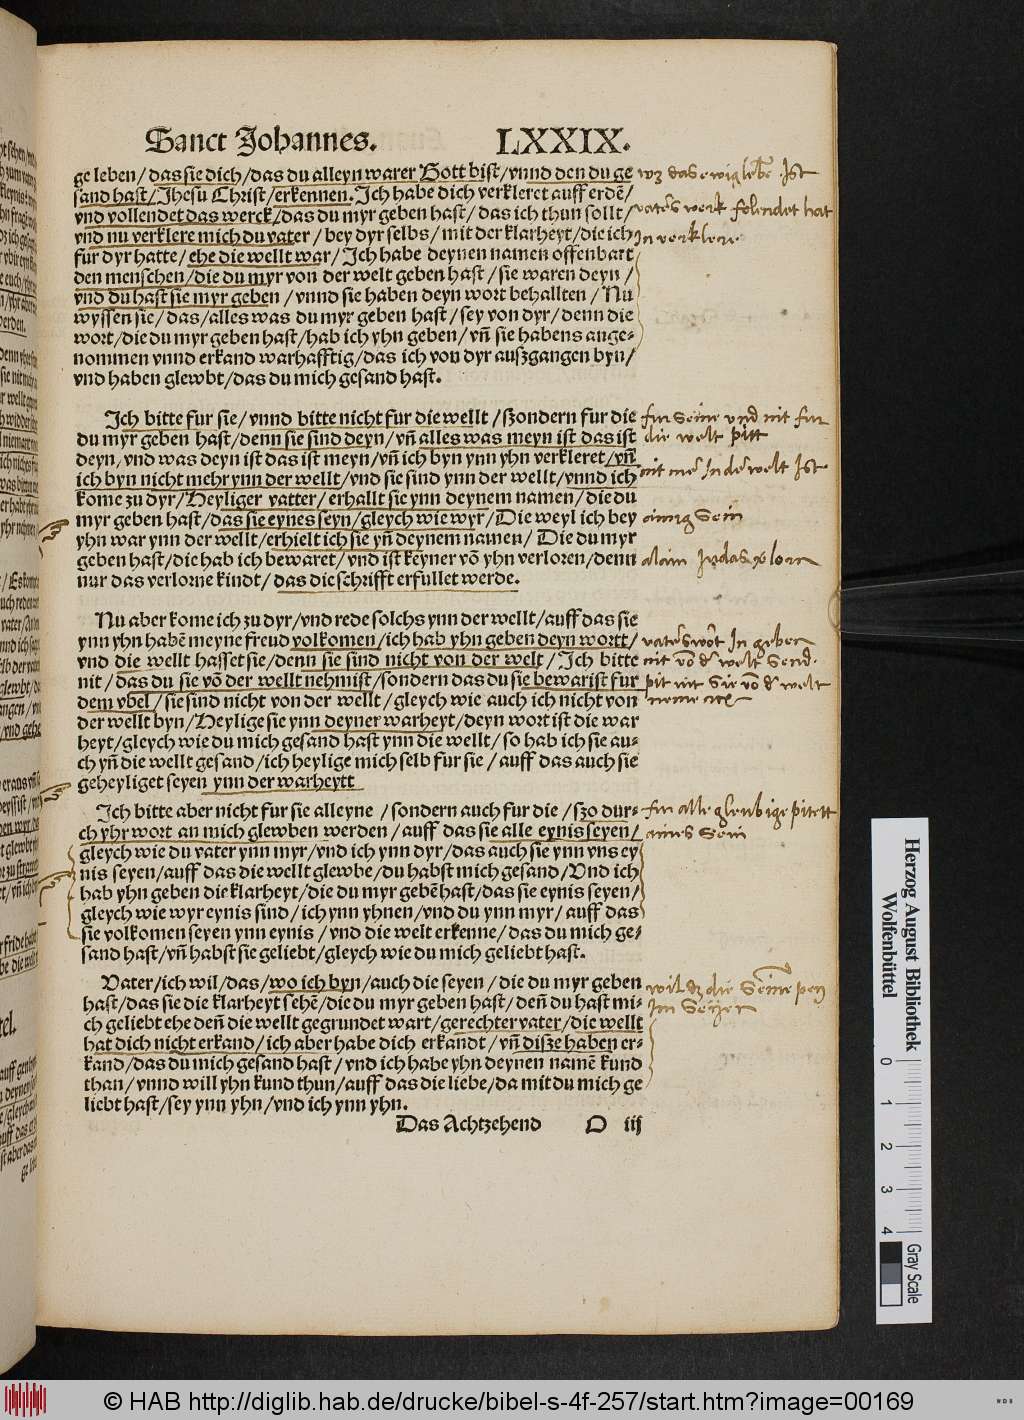 Sanct Johannes. LXXIX.
ge leben/ das sie dich/das du alleyn warer Gott bist/vnnd den du ge
sand hast/Jhesu Christ/erkennen. Ich habe dich verkleret auff erdē/
vnd vollendet das werck/das du myr geben hast/das ich thun sollt/
vnd nu verklere mich du vater/ bey dyr selbs/ mit der klarheyt/die ich
fur dyr hatte/ ehe die wellt war/ Ich habe deynen namen offenbart
den menschen/die du myr von der welt geben hast/ sie waren deyn/
vnd du hast sie myr geben/vnnd sie haben deyn wort behallten/ Nu
wyssen sie/das/alles was du myr geben hast/ sey von dyr/denn die
wort/die du myr geben hast/hab ich yhn geben/vñ sie habens ange-
nommen vnnd erkand warhafftig/das ich von dyr auszgangen byn/
vnd haben glewbt/das du mich gesand hast.
Ich bitte fur sie/vnnd bitte nicht fur die wellt/szondern fur die
du myr geben hast/denn sie sind deyn/vñ alles was meyn ist das ist
deyn/vnd was deyn ist das ist meyn/vñ ich byn ynn yhn verkleret/vñ
ich byn nicht mehr ynn der wellt/vnd sie sind ynn der wellt/vnnd ich
kome zu dyr/Heyliger vatter/erhallt sie ynn deynem namen/die du
myr geben hast/das sie eynes seyn/gleych wie wyr/Die weyl ich bey
yhn war ynn der wellt/erhielt ich sie yñ deynem namen/ Die du myr
geben hast/die hab ich bewaret/vnd ist keyner võ yhn verloren/denn
nur das verlorne kindt/ das die schrifft erfullet werde.
Nu aber kome ich zu dyr/vnd rede solchs ynn der wellt/auff das sie
ynn yhn habē meyne freud volkomen/ich hab yhn geben deyn wortt/
vnd die wellt hasset sie/denn sie sind nicht von der welt/Ich bitte
nit/das du sie võ der wellt nehmist/sondern das du sie bewarist fur
dem vbel/sie sind nicht von der wellt/gleych wie auch ich nicht von
der wellt byn/Heylige sie ynn deyner warheyt/deyn wort ist die war
heyt/gleych wie du mich gesand hast ynn die wellt/so hab ich sie au-
ch yñ die wellt gesand/ich heylige mich selb fur sie/auff das auch sie
geheyliget seyen ynn der warheytt
Ich bitte aber nicht fur sie alleyne/sondern auch fur die/szo dur-
ch yhr wort an mich glewben werden/auff das sie alle eynis seyen/
gleych wie du vater ynn myr/vnd ich ynn dyr/das auch sie ynn vns ey
nis seyen/auff das die wellt glewbe/du habst mich gesand/Vnd ich
hab yhn geben die klarheyt/die du myr gebē hast/das sie eynis seyen/
gleych wie wyr eynis sind/ich ynn yhnen/vnd du ynn myr/auff das
sie volkomen seyen ynn eynis/vnd die welt erkenne/das du mich ge-
sand hast/vñ habst sie geliebt/gleych wie du mich geliebt hast.
Vater/ich wil/das/wo ich byn/auch die seyen/die du myr geben
hast/das sie die klarheyt sehē/die du myr geben hast/deñ du hast mi-
ch geliebt ehe deñ die wellt gegrundet wart/gerechter vater/die wellt
hat dich nicht erkand/ich aber habe dich erkandt/vñ disze haben er-
kand/das du mich gesand hast/vnd ich habe yhn deynen namē kund
than/vnnd will yhn kund thun/auff das die liebe/da mit du mich ge
liebt hast/sey ynn yhn/vnd ich ynn yhn.
Das Achtzehend O iij
vaters werk folendet hat
in verklere
fur seine und nit fur
die welt pitt
ainig sein
nit võ der welt send
fur alle gleubige pitett
aines sein
Herzog August Bibliothek
Wolfenbüttel
0 1 2 3 4
Gray Scale
© HAB http://diglib.hab.de/drucke/bibel-s-4f-257/start.htm?image=00169